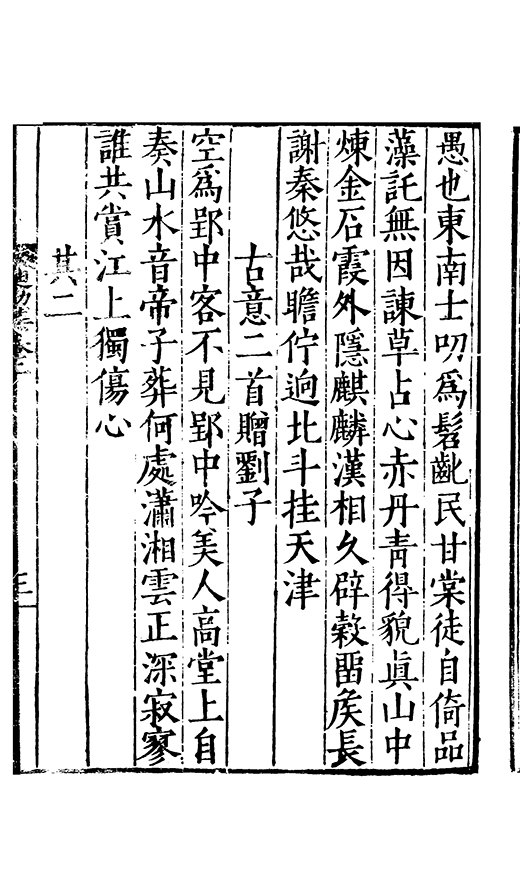 愚也東南士叨爲髫齔民甘棠徒自倚品
藻託無因諫草占心赤丹青得貌眞山中
煉金石霞外隱麒麟漢相久辟穀畱矦長
謝秦悠哉瞻佇逈北斗挂天津
古意二首贈劉子
空爲郢中客不見郢中吟美人高堂上自
奏山水音帝子葬何處瀟湘雲正深寂寥
誰共賞江上獨傷心
其二